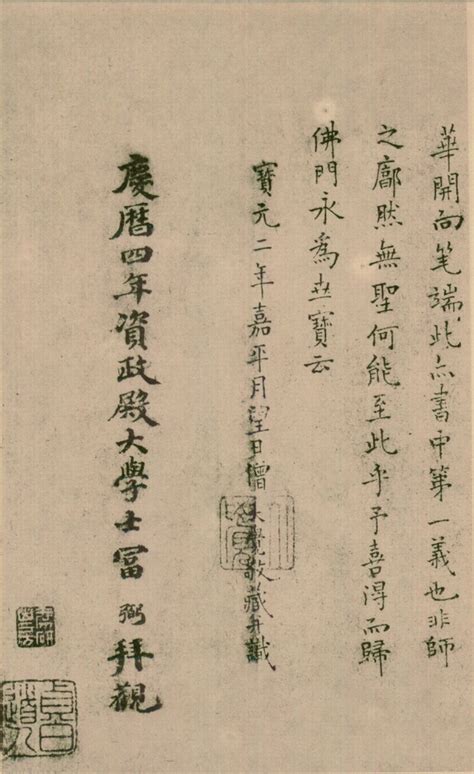 華開向笔端此亦書中第一義也非師
之鄺然無聖何能至此乎予喜得而歸
佛門永為世寶云
寶元二年嘉平月望日僧大覺敬藏并識
慶曆四年資政殿大學士冨弼拜觀